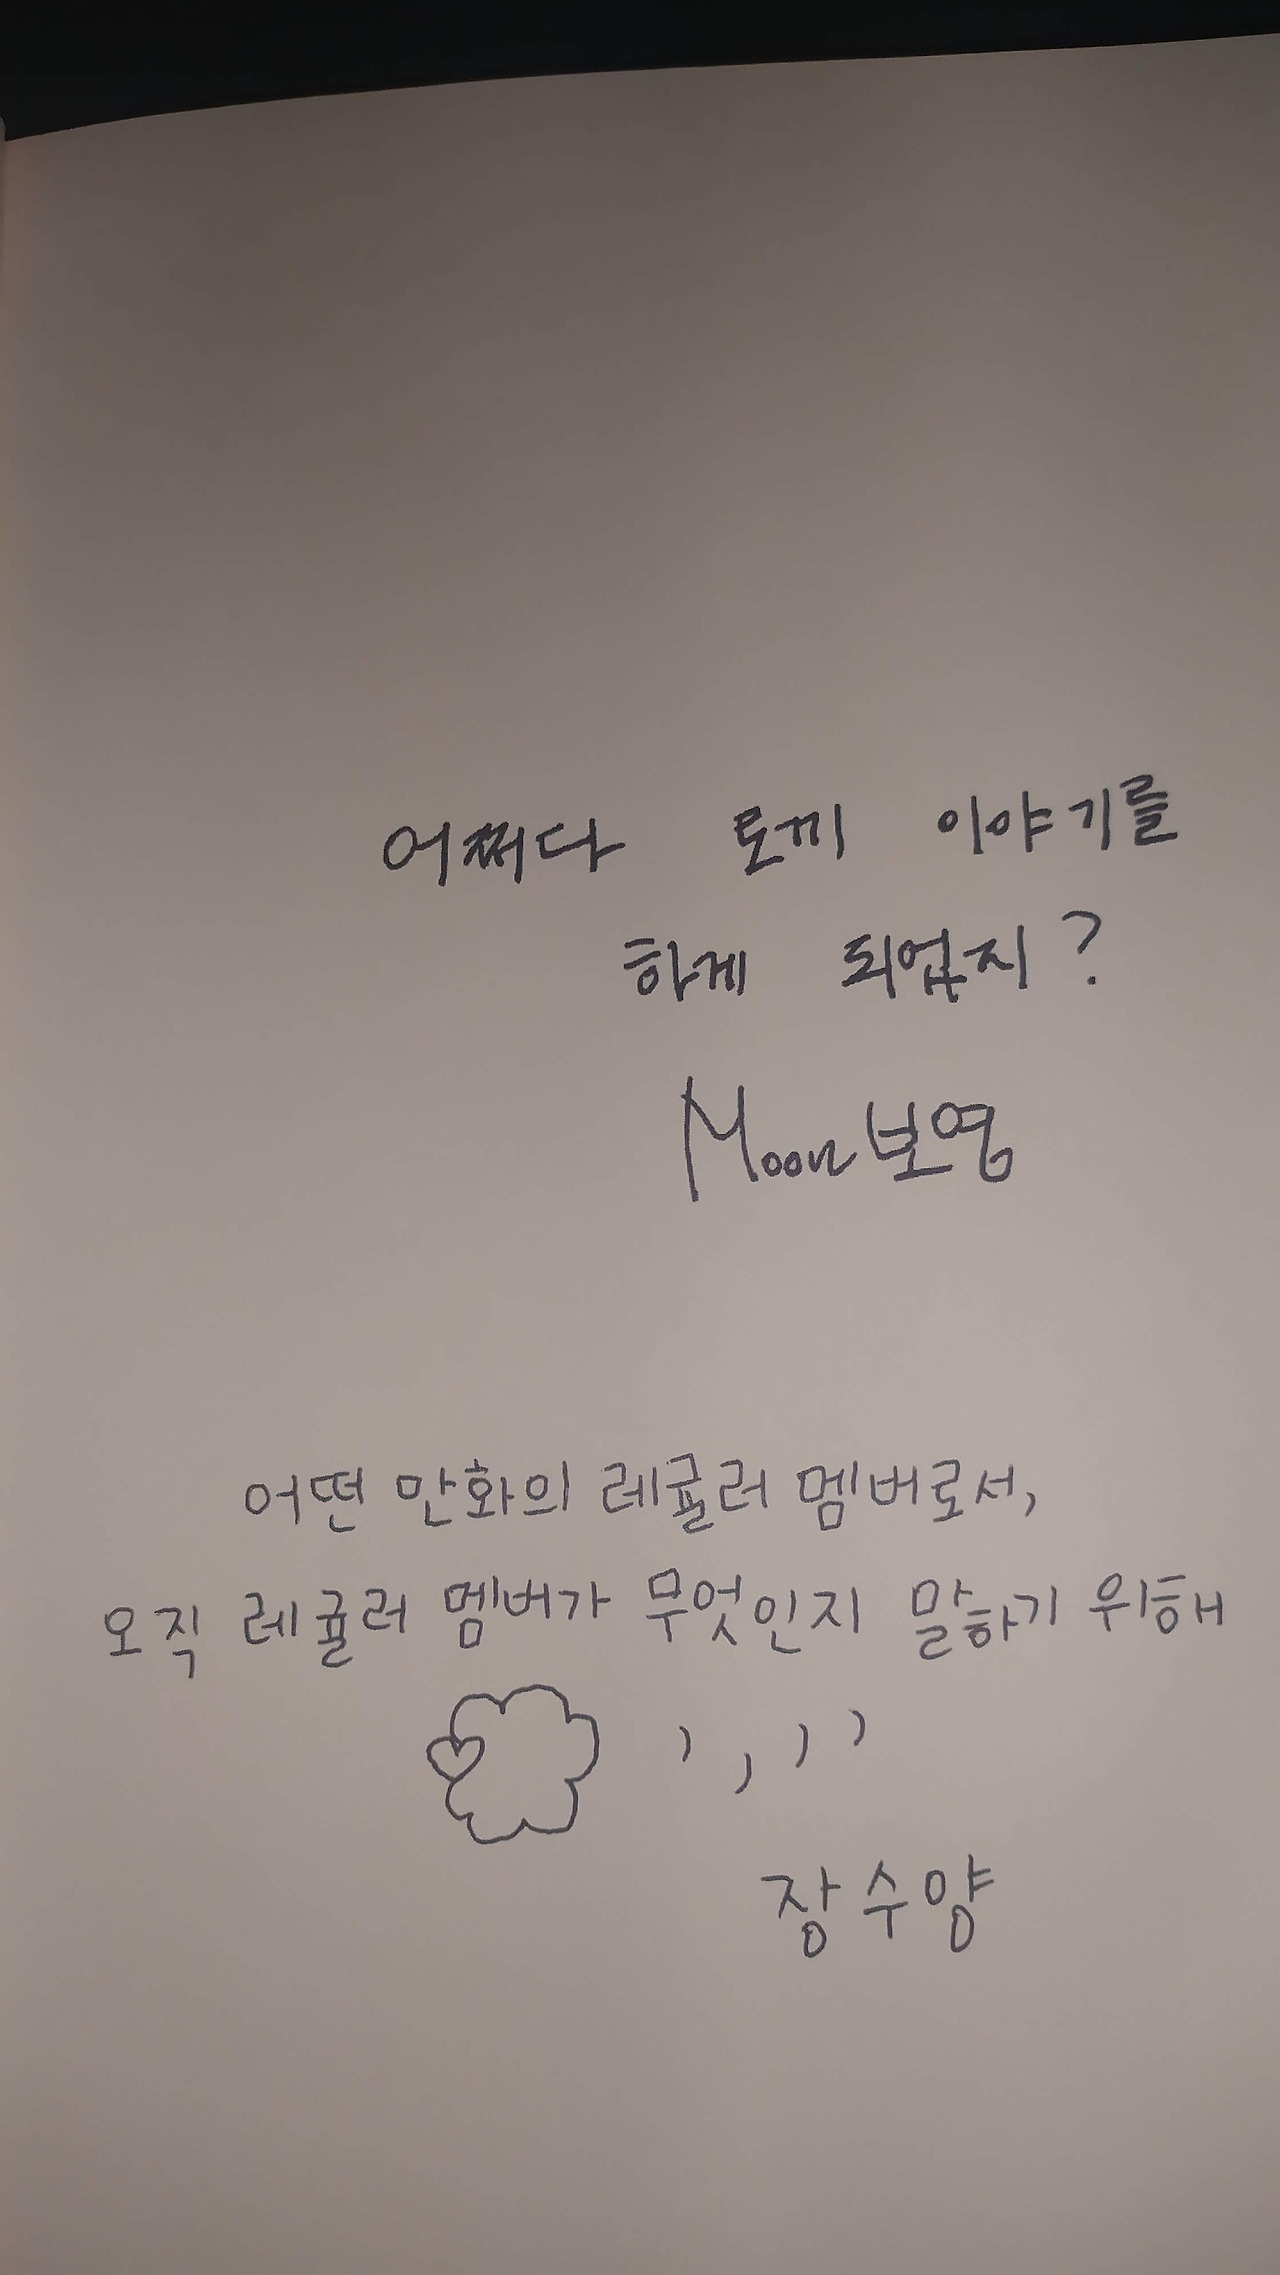 어쩌다 토끼 이야기를
하게 되었지?
Moon보영
어떤 만화의 레귤러 멤버로서,
오직 레귤러 멤버가 무엇인지 말하기 위해
장수양